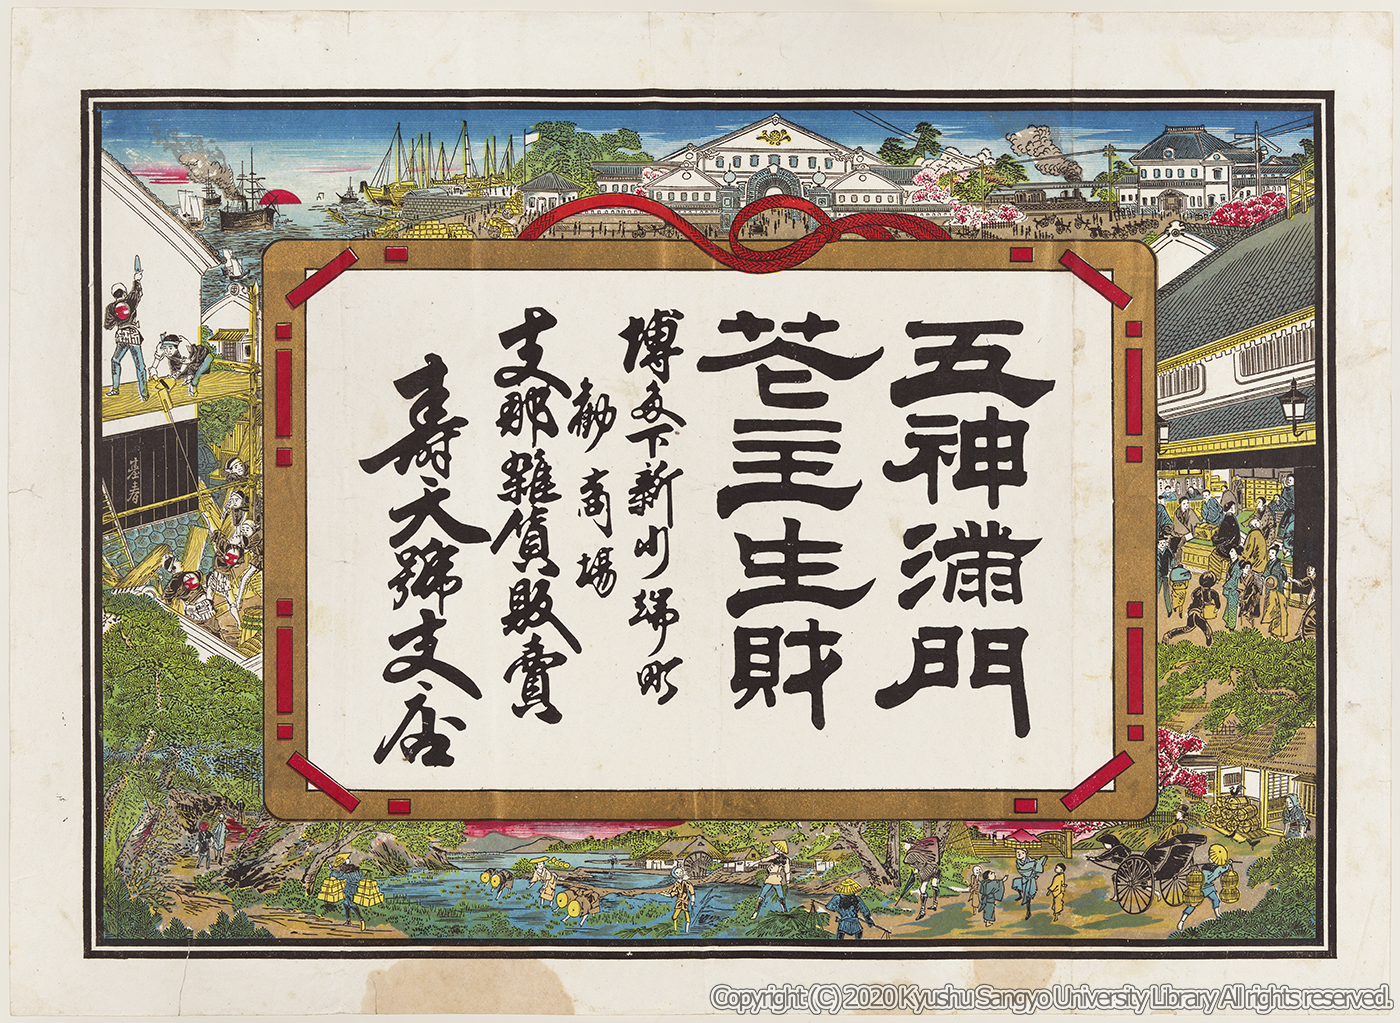 五神満門
花主生財
博多下新川端町
勧商場
支那雜貨販賣
壽天號支店
Copyright (C) 2020 Kyushu Sangyo University Library All rights reserved.